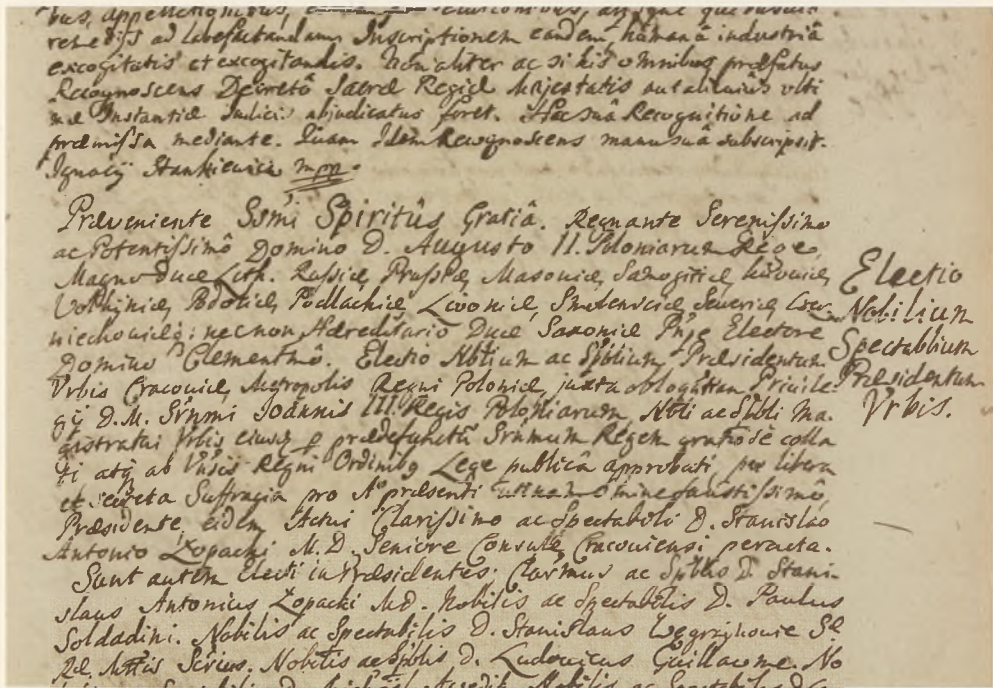 remedijs ad labefactandam Inscriptionem eandem humanâ industriâ
excogitatis et excogitandis. Non aliter ac si his omnibus præfatus
Recognoscens Decretô Sacræ Regiæ Majestatis aut alicuius ulti
mæ Instantiæ Iudicij abjudicatus foret. Hac suâ Recognitione ad
præmissa mediante. Quam Idem Recognoscens manu suâ subscripsit.
Ignacÿ Stankiewicz mpp.
Præveniente Ssmi Spiritûs Gratiâ. Regnante Serenissimo
ac Potentissimô Domino D. Augusto II. Poloniarum Rege,
Magno Duce Lith. Russiæ, Prussiæ, Masoviæ, Samogitiæ, Kijoviæ,
Volhijniæ, Podoliæ, Podlachiæ, Livoniæ, Smolensciæ, Severiæ, Czer
niechoviæq; necnon Hæreditario Duce Saxoniæ Pnpe Electore
Domino Clementmô. Electio Nbtium ac Spblium Præsidentum
Urbis Cracoviæ, Metropolis Regni Poloniæ, juxta obloquttam Privile-
gij D.M. Srnmi Joannis III. Regis Poloniarum, Nbli ac Spbli Ma-
gistratui Urbis eiusq; p prædefunctû Srnmum Regem gratiosè colla
ti atq; ab Vnsis Regni Ordinibq Lege publicâ approbati, per libera
et secreta Suffragia pro Aô præsenti utinam omine faustissimô,
Præsidente, eidem Actui Clarissimo ac Spectabili D. Stanislao
Antonio Łopacki M.D. Seniore Consule, Cracoviensi peracta.
Sunt autem Electi in Præsidentes: Clarimus ac Spblis D. Stani-
slaus Antonius Łopacki MD. Nobilis ac Spectabilis D. Paulus
Soldadini. Nobilis ac Spectabilis D. Stanislaus Węgrzynowic S
Ræ Mttis Scrius. Nobilis ac Spblis D. Ludovicus Guillaome. No
Electio
Nobilium
Spectablium
Præsidentum
Vrbis.